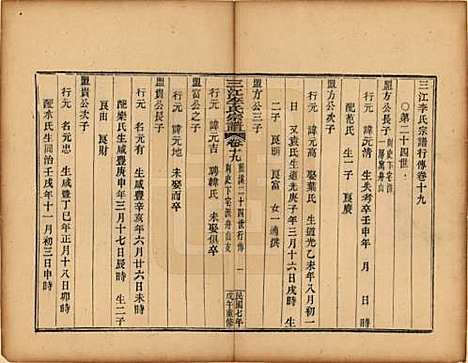 三江李氏宗譜行傳卷十九
〇第二十四世
盟方公長子
行元 諱元清 生失考卒壬申年 月 日
配范氏 生一子 艮慶
盟方公次子
娶葉氏 生道光乙未年八月初一
日 又袁氏生道光庚子年三月十六日戌時
二子 艮明 艮富 女一適撰
三江李氏宗譜 卷十九
藍溪二十四世行傳 一
刺史下宅派舟山支
民國七年
戊午重修
盟富公之子
行元 諱元吉 聘韓氏 未娶俱卒
盟貴公長子
行元 諱元地 未娶而卒
行元 名元有 生咸豐辛亥年六月廿六日戌時
配樂氏生咸豐庚申年三月十七日辰時 生二子
盟貴公次子
行元 名元 生咸豐丁巳年正月十八日卯時
配水氏生同治壬戌年十一月初三日申時